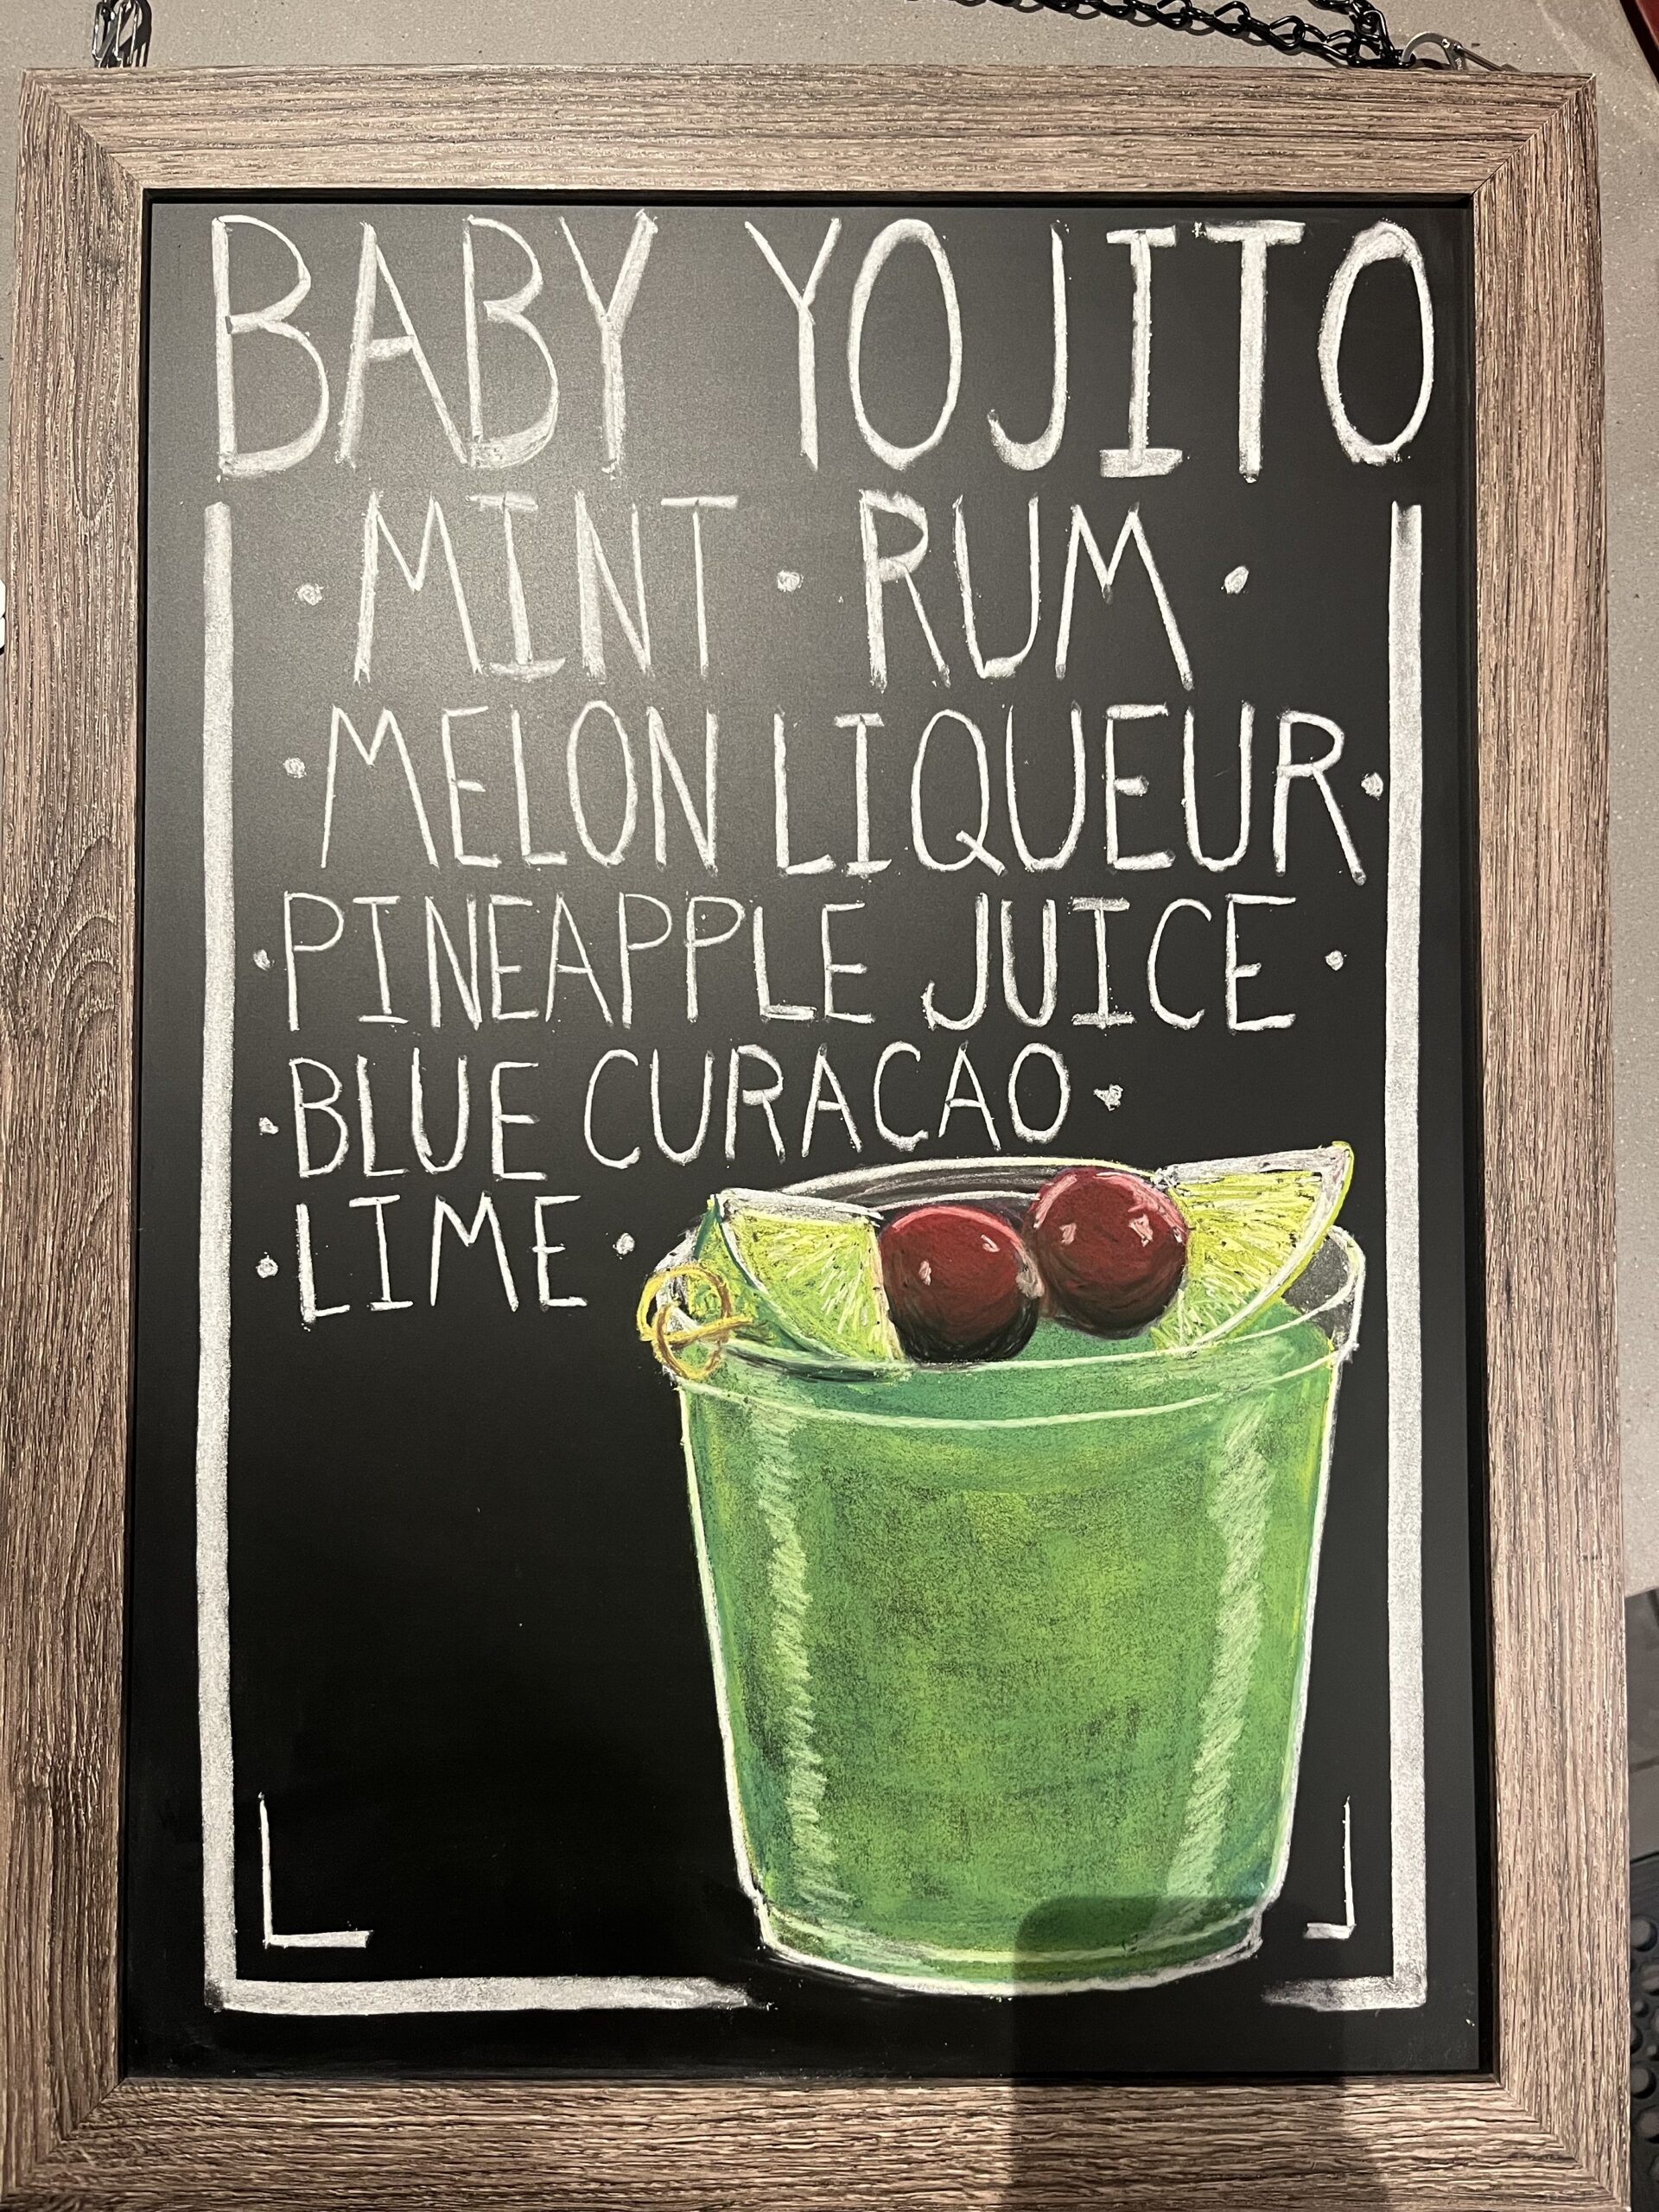 BABY YOJITO
• MINT • RUM •
• MELON LIQUEUR •
• PINEAPPLE JUICE •
• BLUE CURACAO •
• LIME •